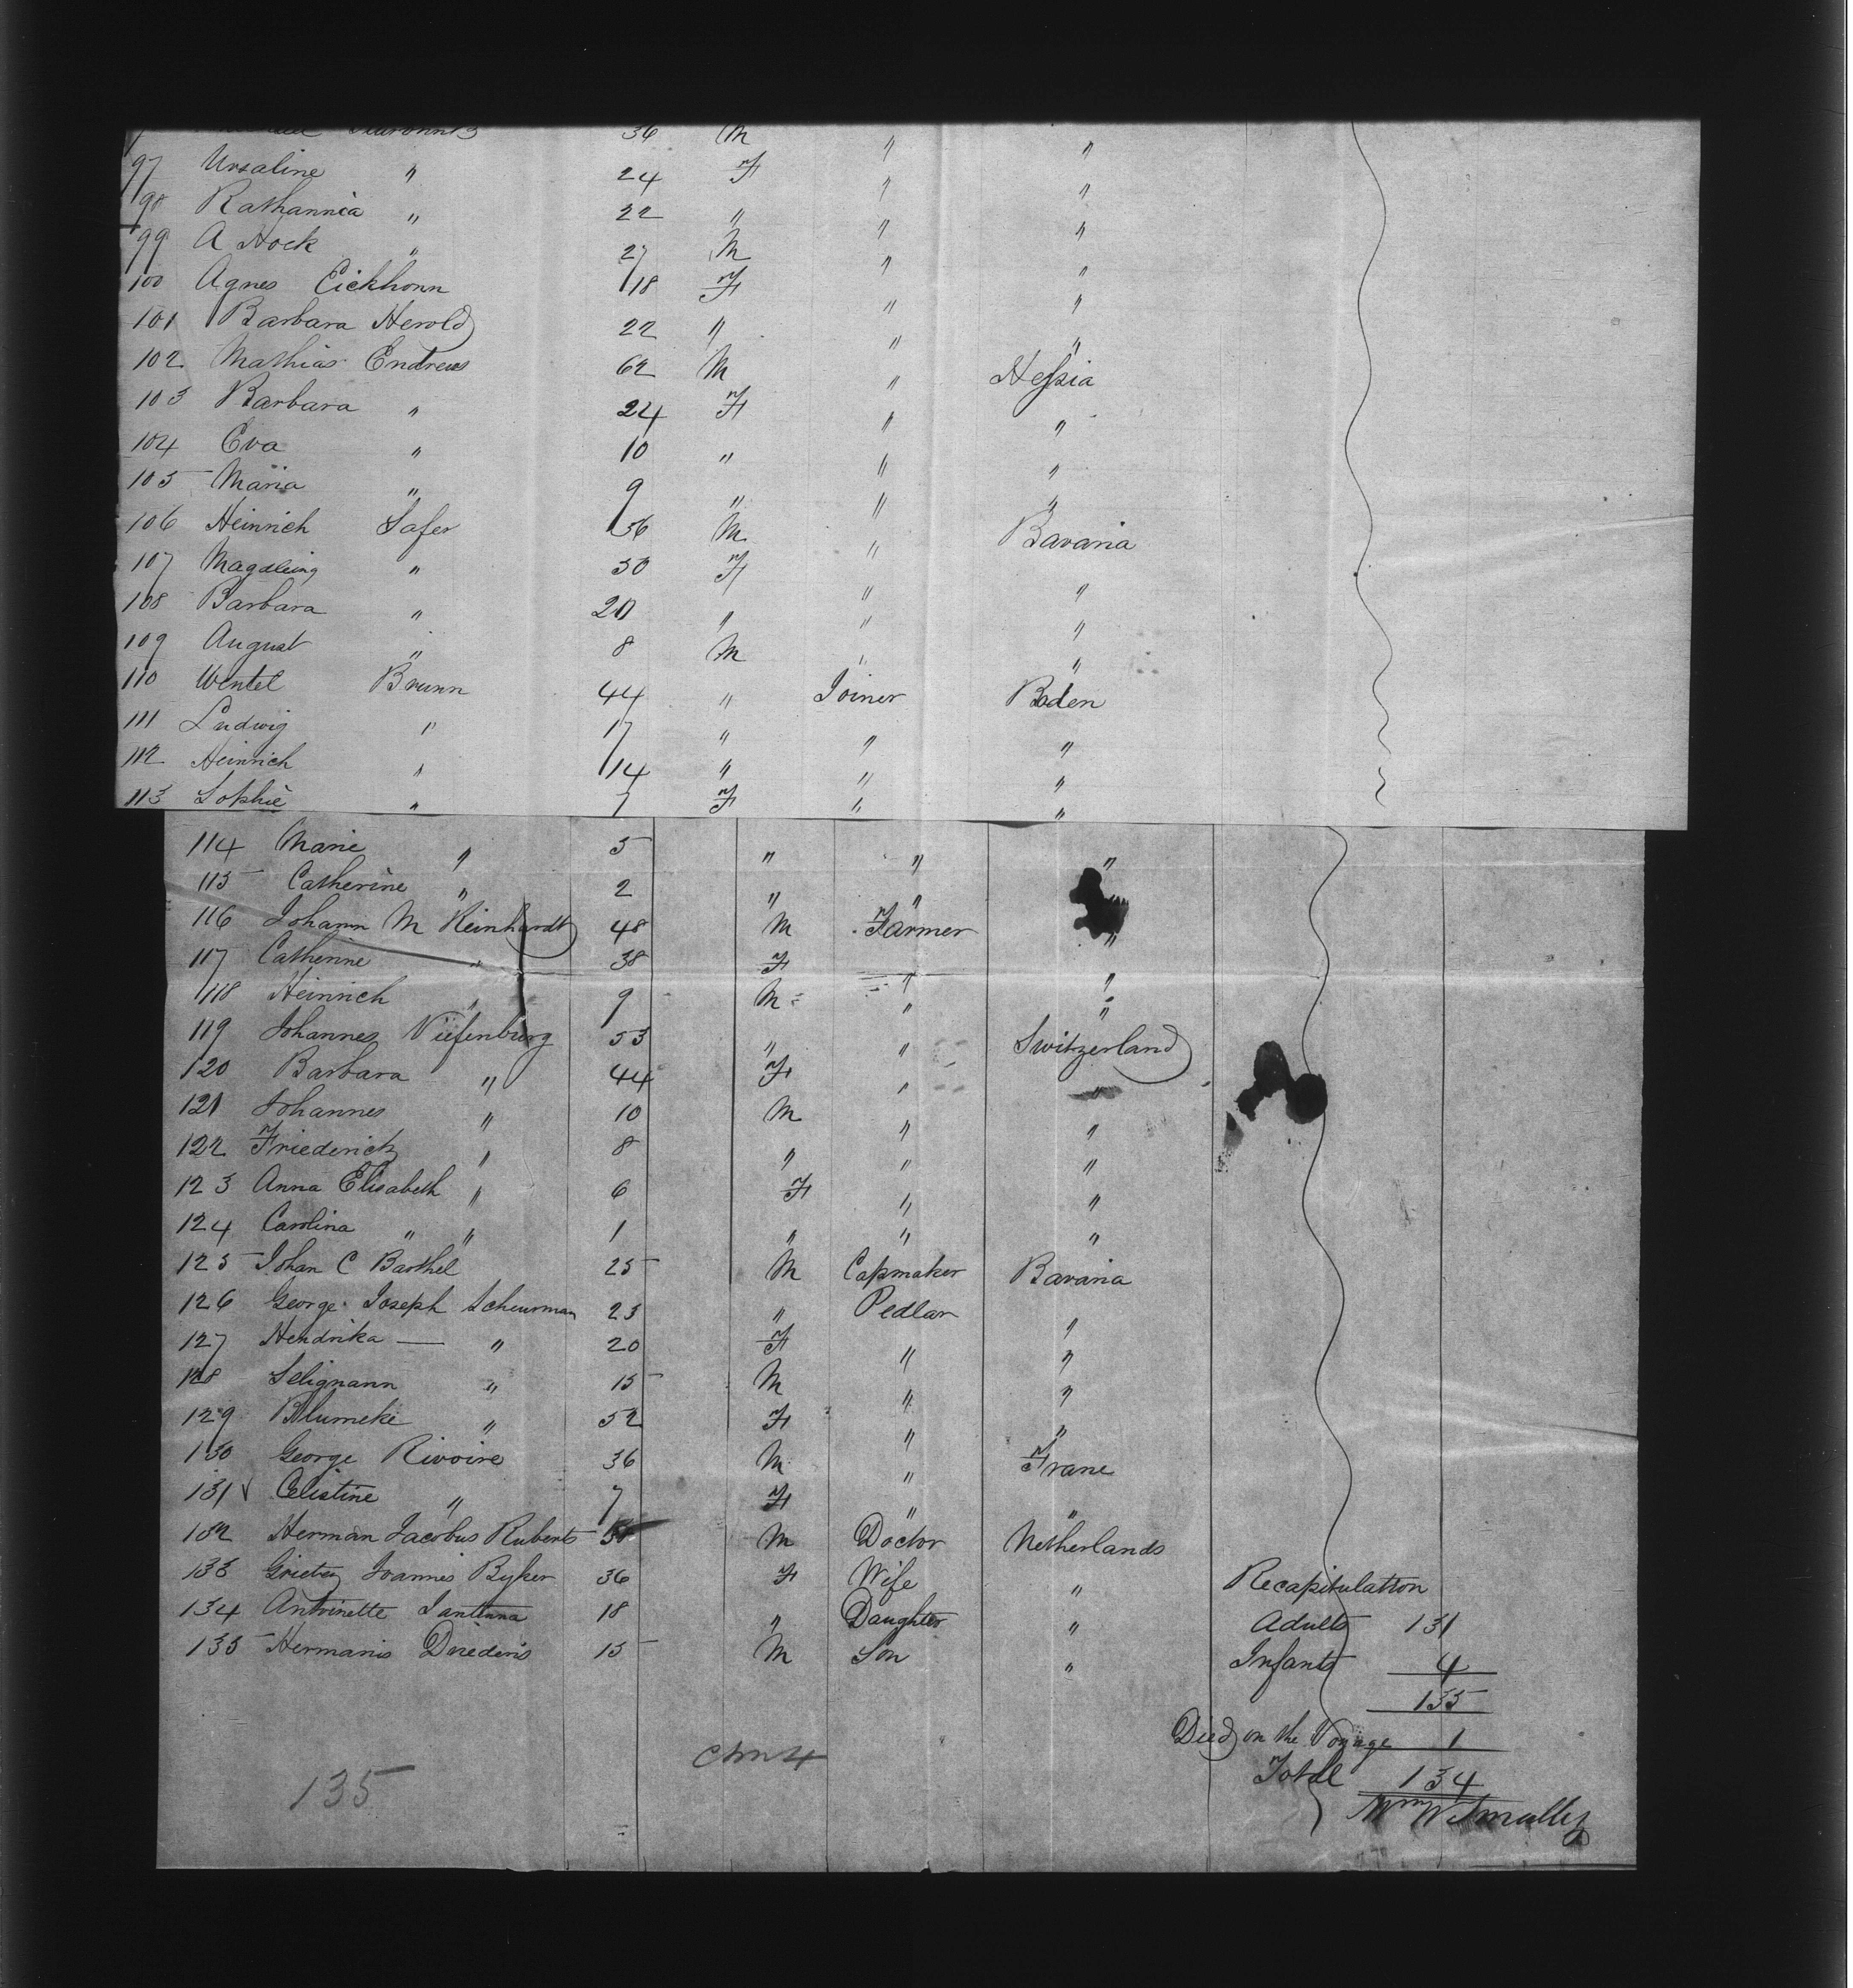 36 M " "
97 Ursaline " 24 F " "
98 Rathannia " 22 " " "
99 A Hock " 27 M " "
100 Agnes Eickhonn 18 F " "
101 Barbara Herold 22 " " "
102 Mathias Endrews 62 M " Hessia
103 Barbara " 24 F " "
104 Eva " 10 " " "
105 Maria " 9 " " "
106 Heinrich Safer 36 M " Bavaria
107 " 30 F " "
108 Barbara " 20 " " "
109 August " 8 M " "
110 Wentel Brunn 44 " Joiner Baden
111 Ludwig " 17 " " "
112 Heinrich " 14 " " "
113 Sophie " 7 F " "
114 Marie " 5 " " "
115 Catherine " 2 " "
116 Johann M Reinhardt 48 M Farmer "
117 Catherine " 38 F " "
118 Heinrich " 9 M " "
119 Johannes 53 " " Switzerland
120 Barbara " 44 F " "
121 Johannes " 10 M " "
122 Friederick " 8 " " "
123 Anna Elisabeth " 6 F " "
124 Carolina " " 1 " " "
125 Johan C Barthel 25 M Capmaker Bavaria
126 George Joseph Scheurman 23 " Pedlar "
127 Hendrika — " 20 F " "
128 Selignann " 15 M " "
129 Blumeke " 52 F " "
130 George Rivoire 36 M " Frane
131 Celistine " 7 F " "
132 Herman Jacobus Ruberts M Doctor Netherlands
133 Grietey Joannis Byker 36 F Wife " Recapitulation
134 Antoinette 18 " Daughter " Adults 131
135 Hermanis 15 M Son " Infants 4
135
Died on the Voyage 1
Total 134
135
Wm W Smalley